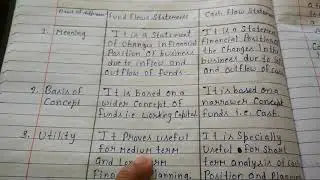 Basis of Difference Fund Flows Statement Cash Flow Statement
1. Meaning It is a Statement It is a Statement
of Changes in Financial Financial Position
Position of business the Changes
due to inflow and business due to
outflow of funds. and outflow of cash
2. Basis of It is based on a It is based on a
Concept wider Concept of narrower Concept
funds i.e. working funds i.e. Cash.
3. Utility It Proves useful It is Specially
for medium term Useful for Short
and Long term term analysis of
Planning. Position and